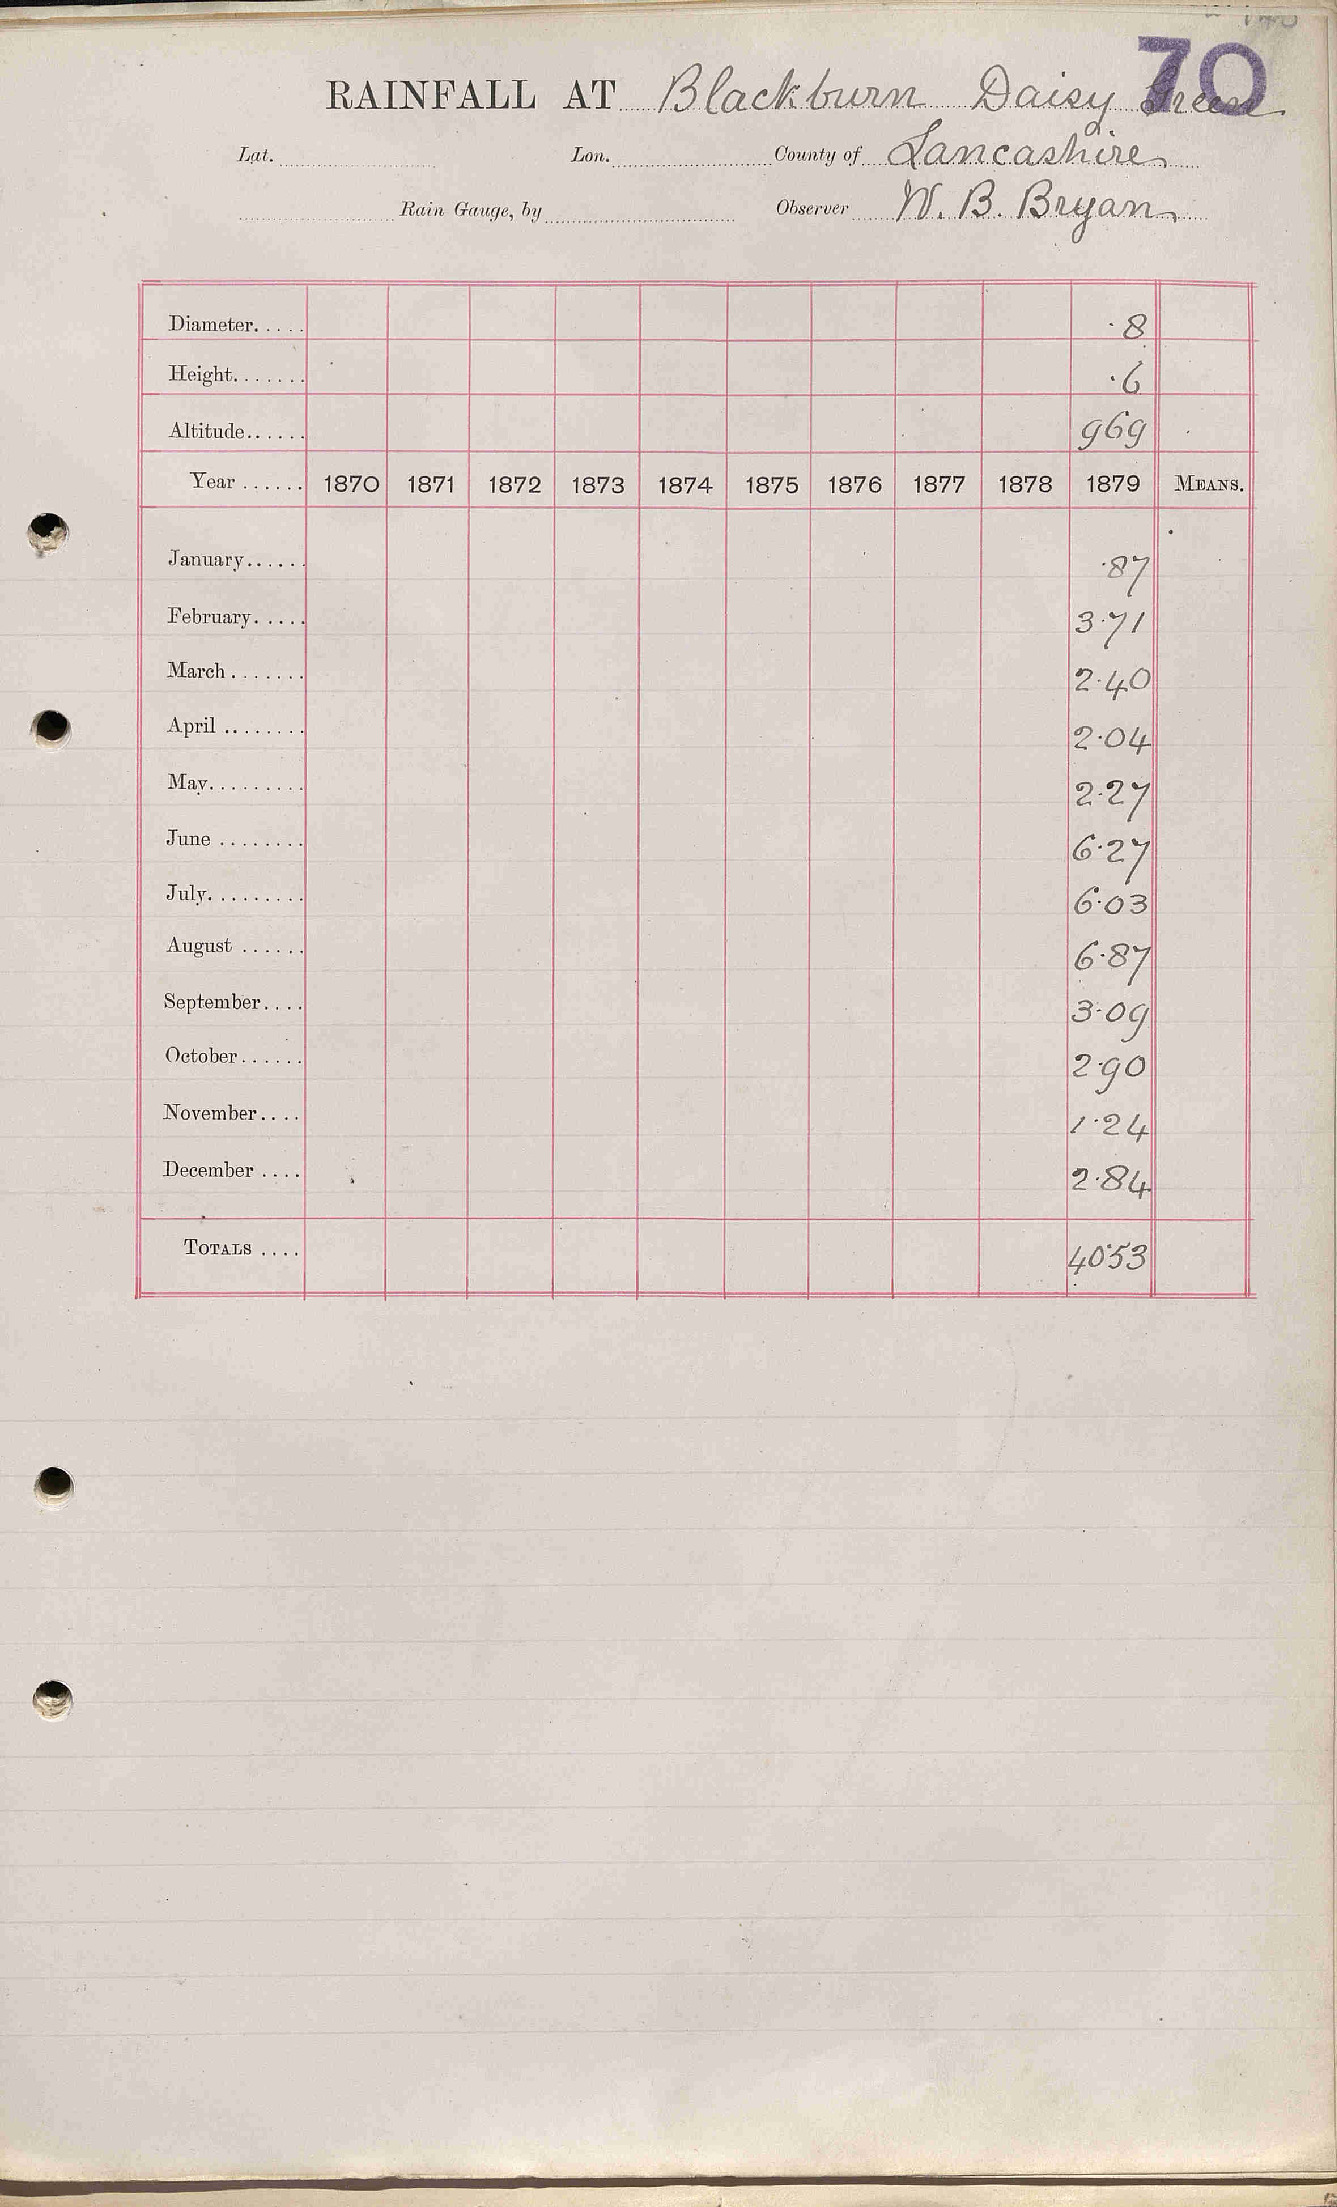 70
RAINFALL AT Blackburn Daisy Green
Lat. Lon. County of Lancashire
Rain Gauge, by Observer W. B. Bryan
Diameter..... ·8
Height....... ·6
Altitude...... 969
Year ...... 1870 1871 1872 1873 1874 1875 1876 1877 1878 1879 MEANS.
January...... ·87
February..... 3·71
March ....... 2·40
April ........ 2·04
May......... 2·27
June ........ 6·27
July......... 6·03
August ...... 6·87
September.... 3·09
October...... 2·90
November.... 1·24
December .... 2·84
TOTALS .... 40·53